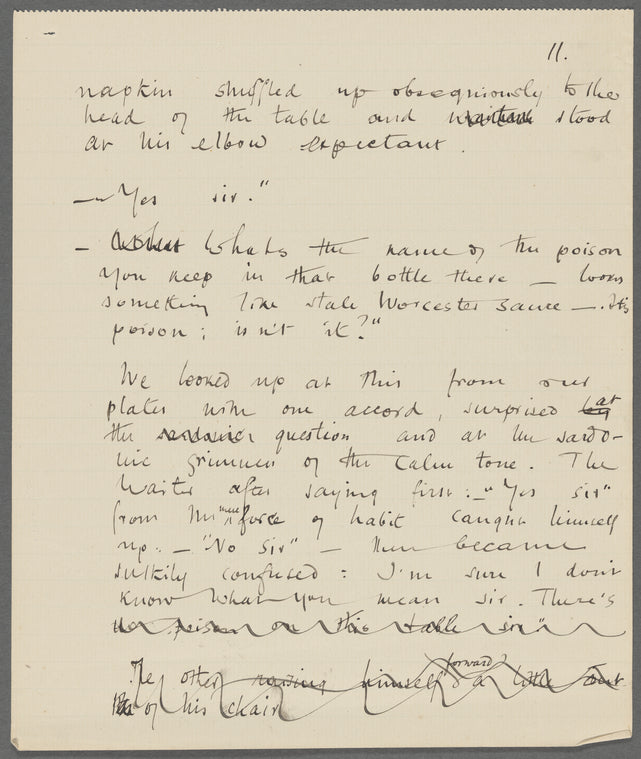 11.
napkin shuffled up obsequiously to the
head of the table and stood
at his elbow expectant.
— "Yes sir."
— What What's the name of the poison
you keep in that bottle there — looks
something like stale Worcester sauce —. It's
poison; isn't it?"
We looked up at this from our
plates with one accord, surprised by at
the question and at the sardo-
nic grimness of the calm tone. The
Waiter after saying first: — "Yes sir"
from the mere force of habit caught himself
up. — "No sir" — then became
sulkily confused: I'm sure I don't
know what you mean sir. There's
no poison on this table sir"
The other raising himself forward a little out
of his chair